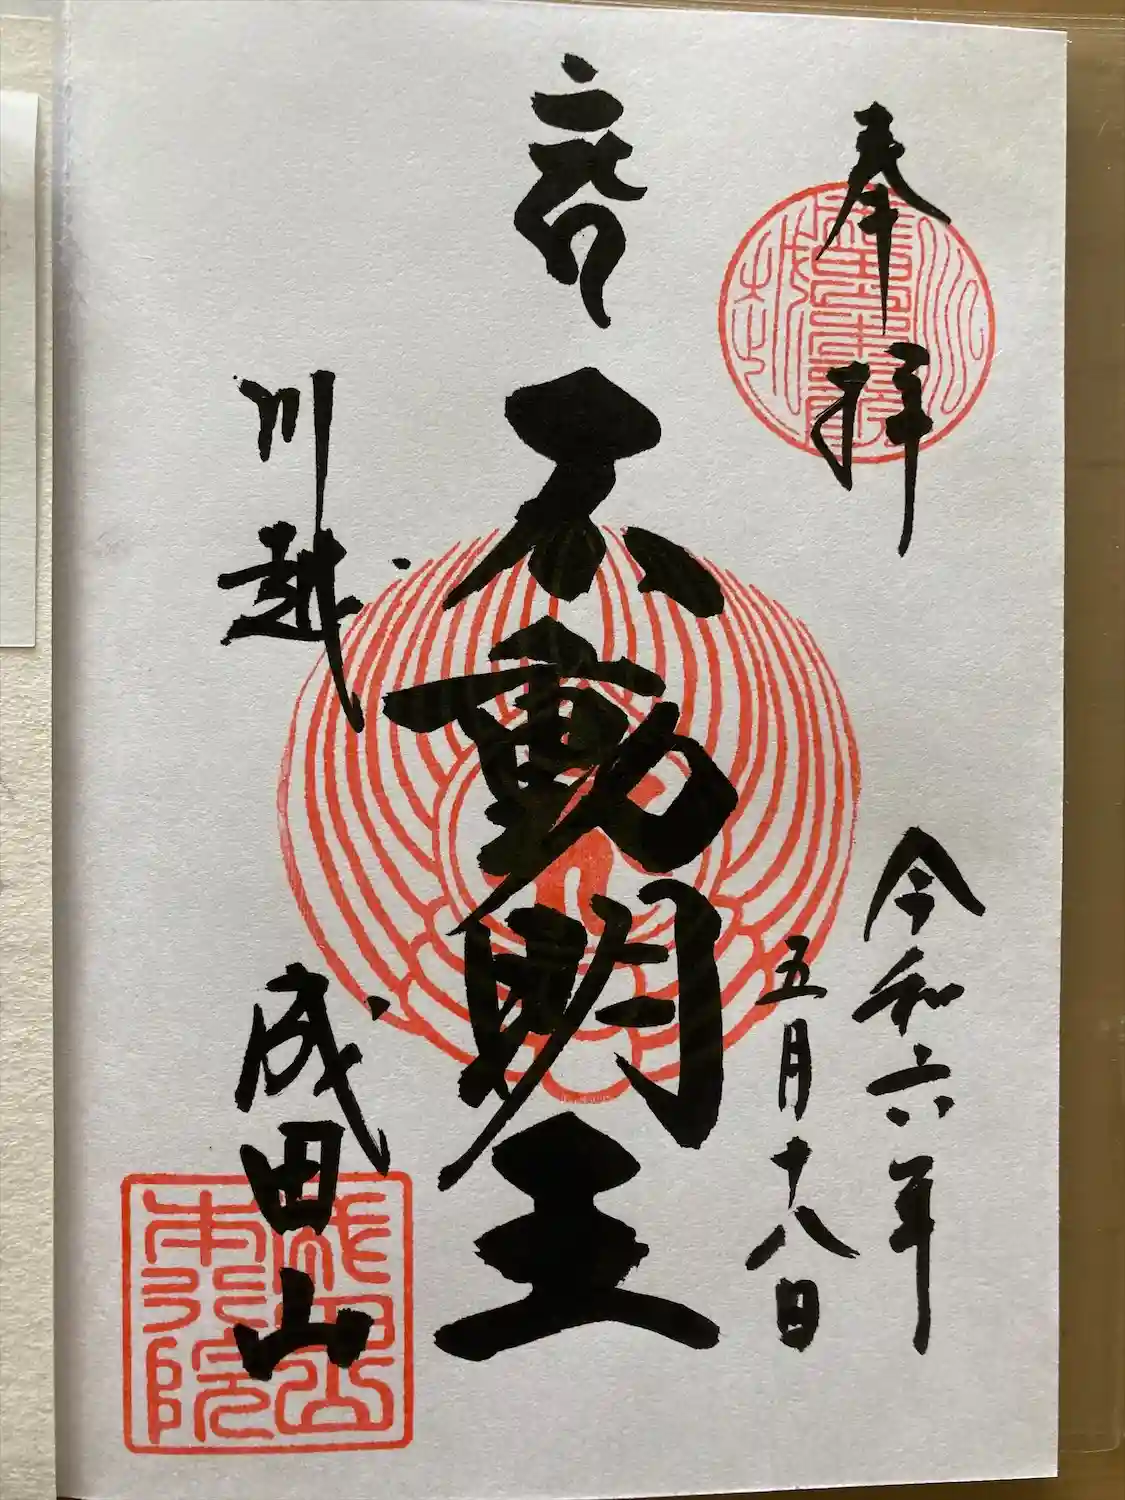 奉拝
令和六年
五月十八日
不動明王
川越
成田山
成田山
本行院